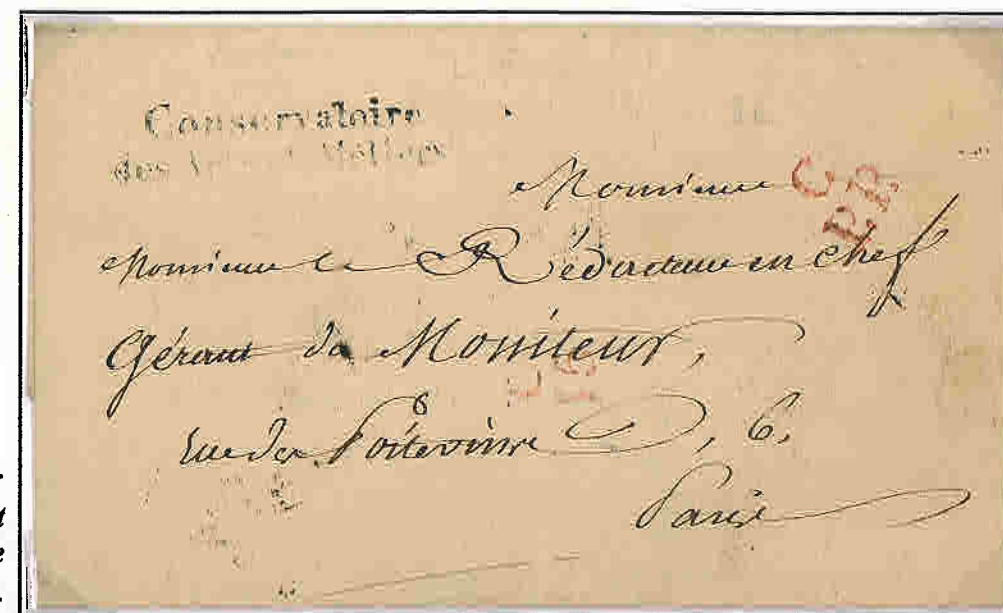 Conservatoire
des Arts et Métiers
Monsieur
C
PP
Monsieur le Rédacteur en chef
Gérant du Moniteur,
rue des Poitevins, 6,
Paris
t
e